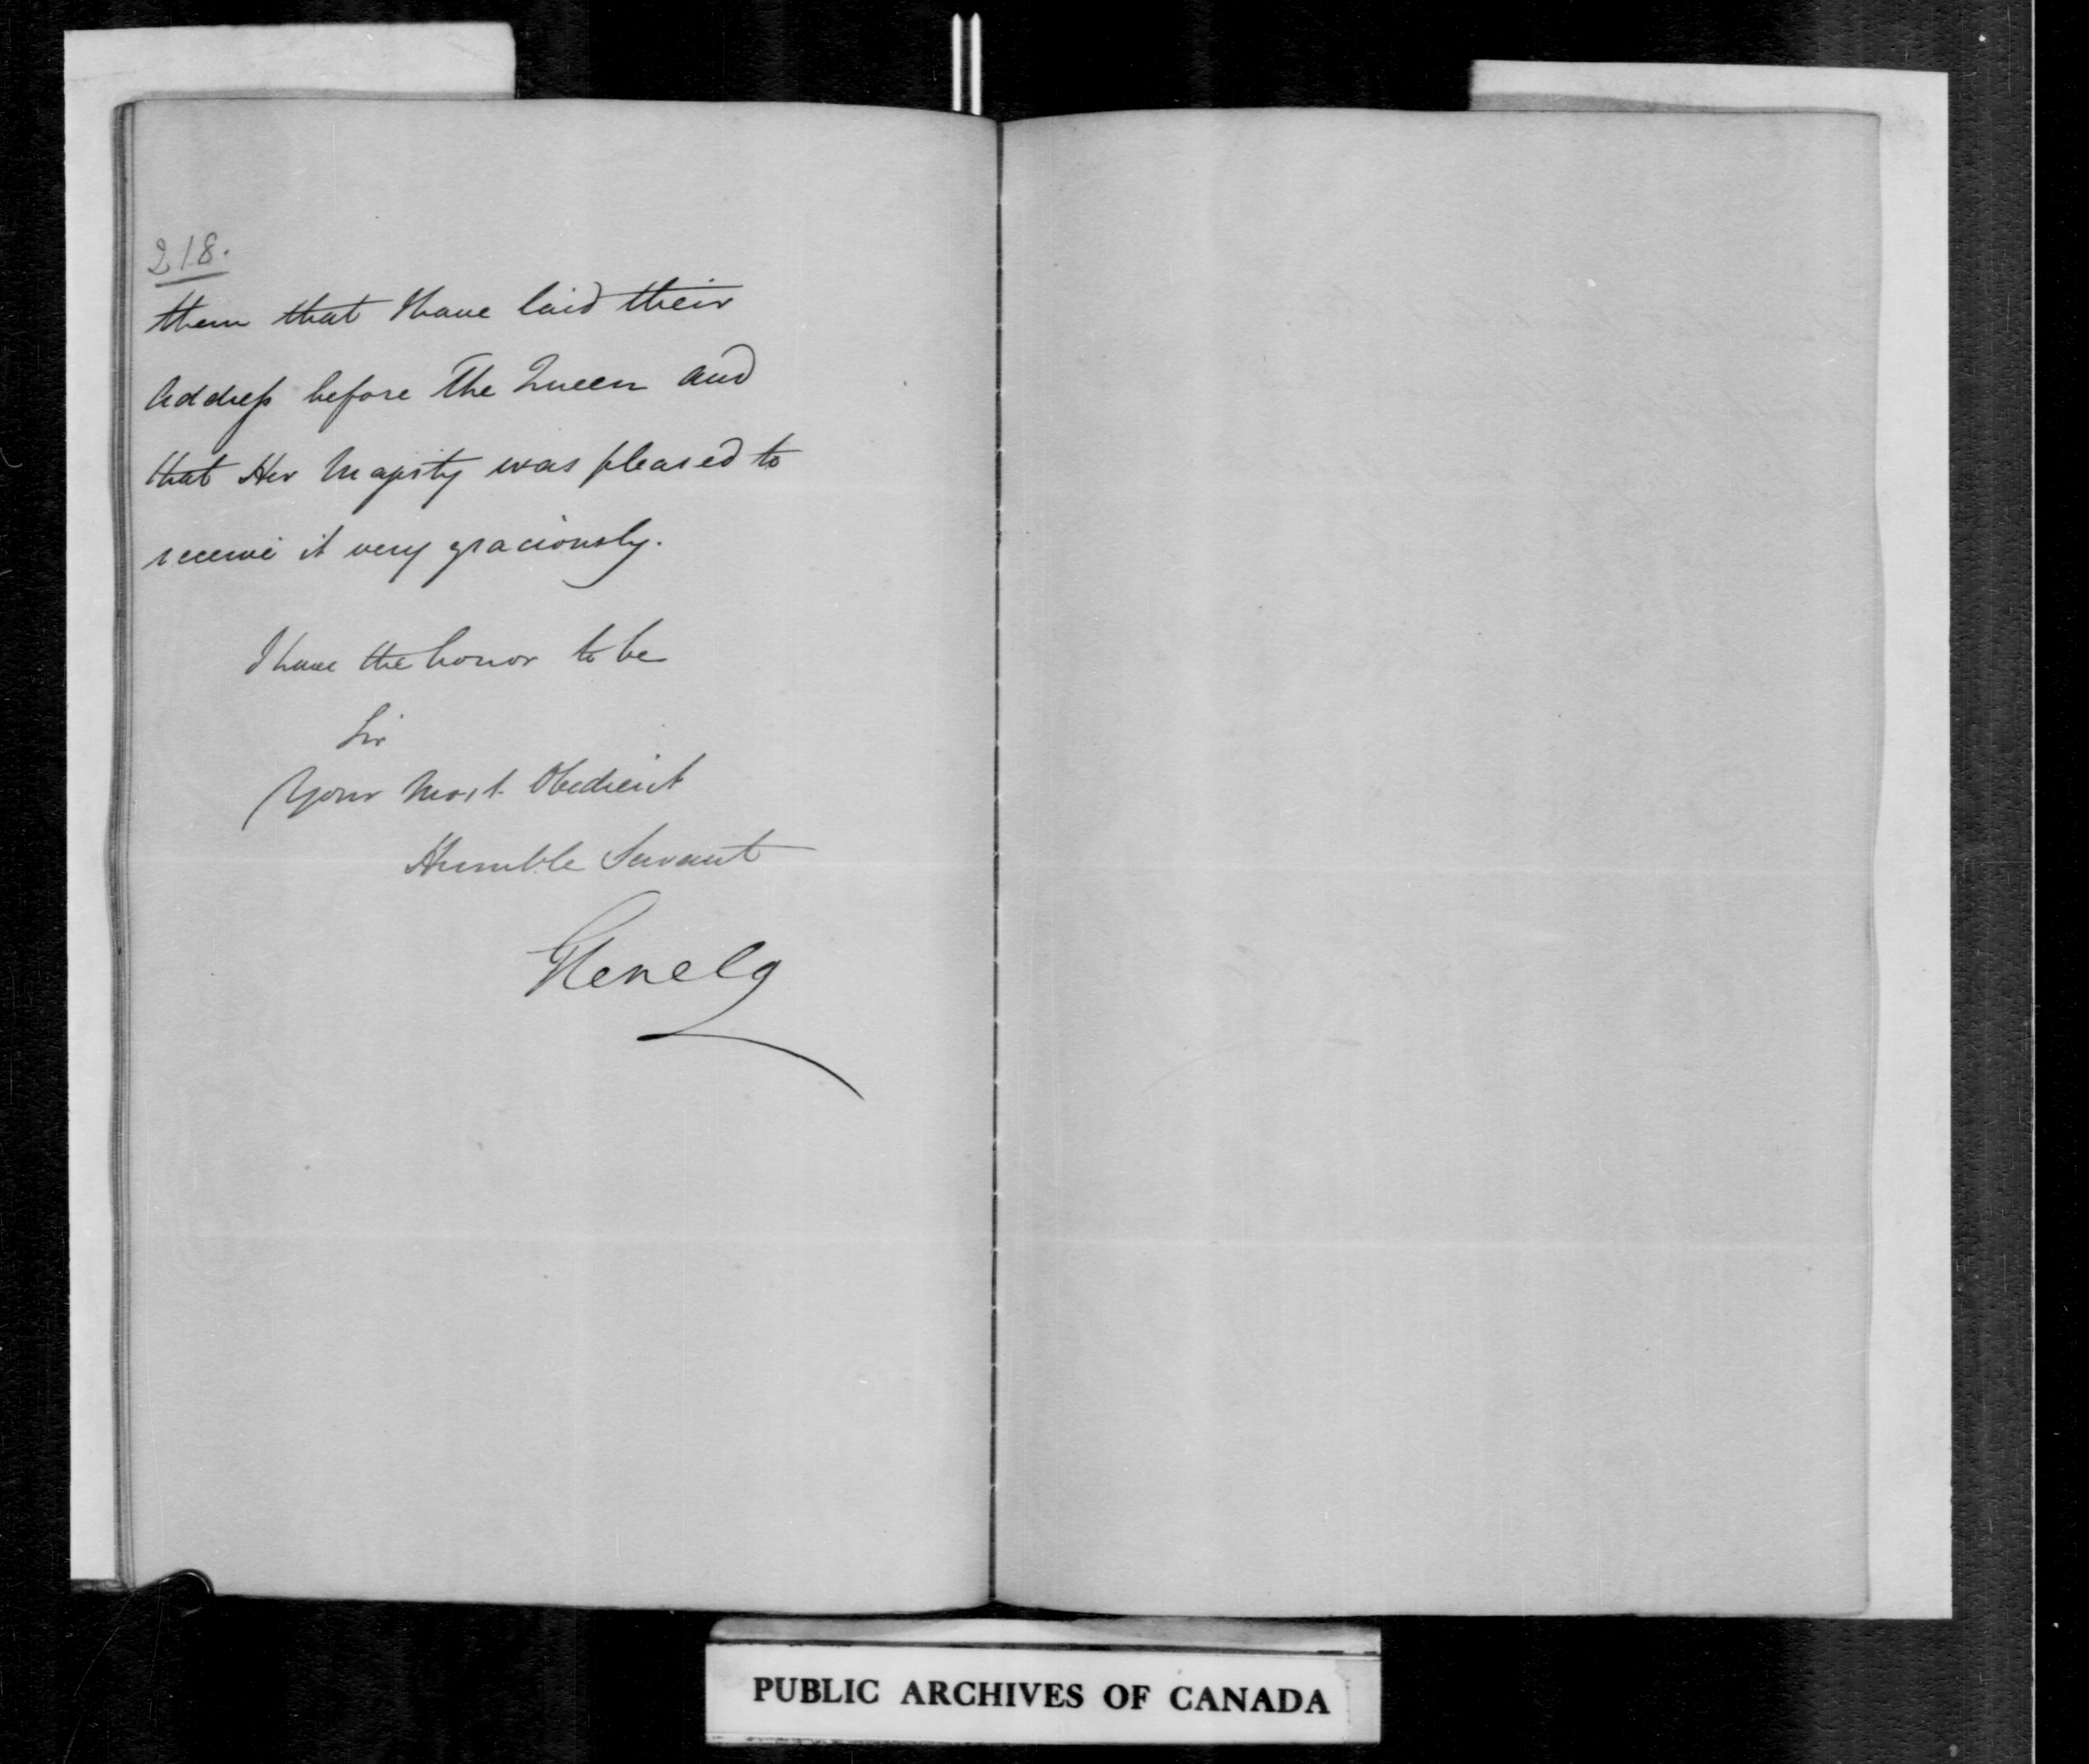 218.
them that I have laid their
Address before The Queen and
that Her Majesty was pleased to
receive it very graciously.
I have the honor to be
Sir
Your Most Obedient
Humble Servant
Glenelg
PUBLIC ARCHIVES OF CANADA